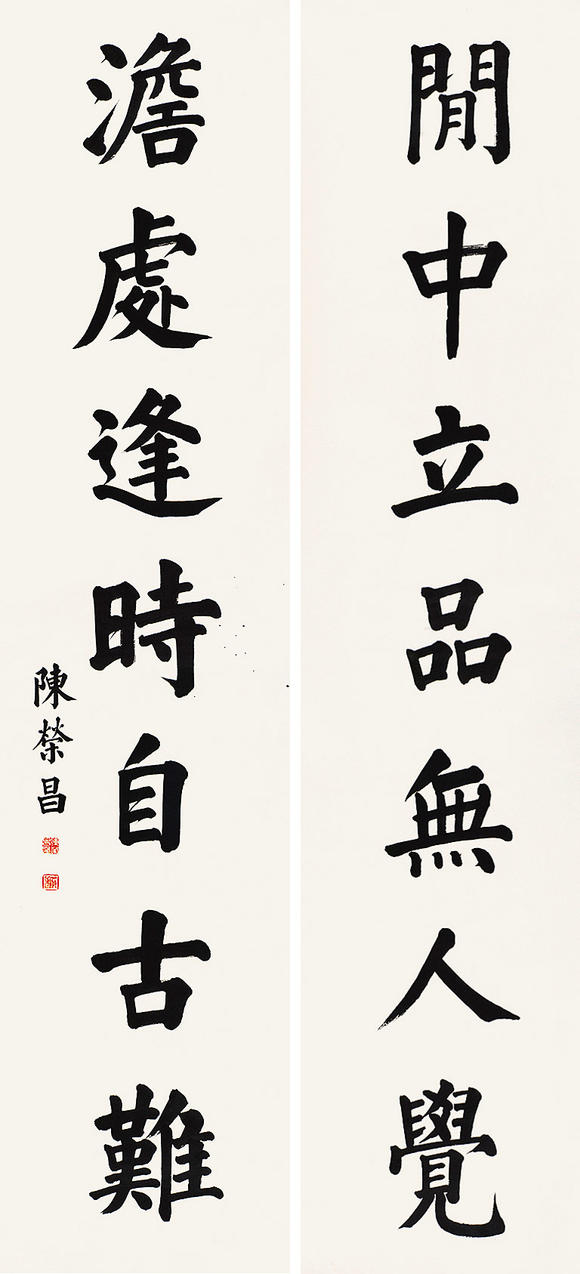 閒中立品無人覺
澹處逢時自古難
陳榮昌